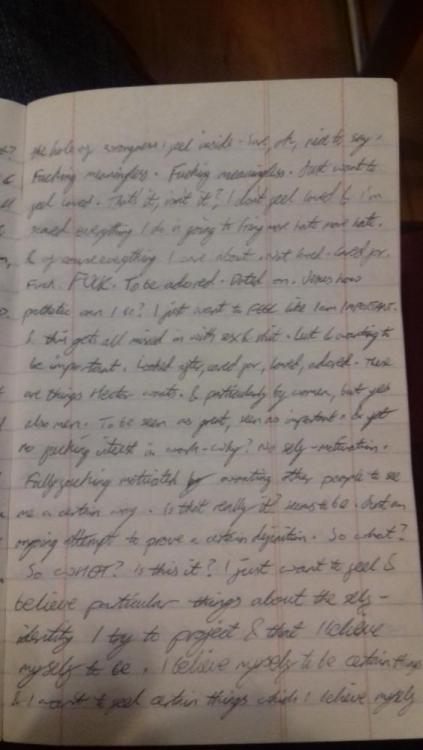 the hole of wrongness I feel inside. Sure, ok, nice to say.
Fucking meaningless. Fucking meaningless. Just want to
feel loved. That's it, isn't it? I don't feel loved & I'm
scared everything I do is going to bring more hate more hate.
& of course everything I care about. Not loved - cared for.
Fuck. FUCK. To be adored. Doted on. Jesus how
pathetic can I be? I just want to FEEL like I am IMPORTANT.
& this gets all mixed in with sex & shit. Lust & wanting to
be important. Looked after, cared for, loved, adored. These
are things Hector wants. & particularly by women, but yes
also men. To be seen as great, seen as important. & yet
no fucking interest in work - why? No self-motivation.
Fully fucking motivated by wanting other people to see
me a certain way. Is that really it? Seems to be. Just an
ongoing attempt to prove a certain definition. So what?
So WHAT? Is this it? I just want to feel &
believe particular things about the self-
identity I try to project & that I believe
myself to be. I believe myself to be certain things
& I want to feel certain things which I believe myself